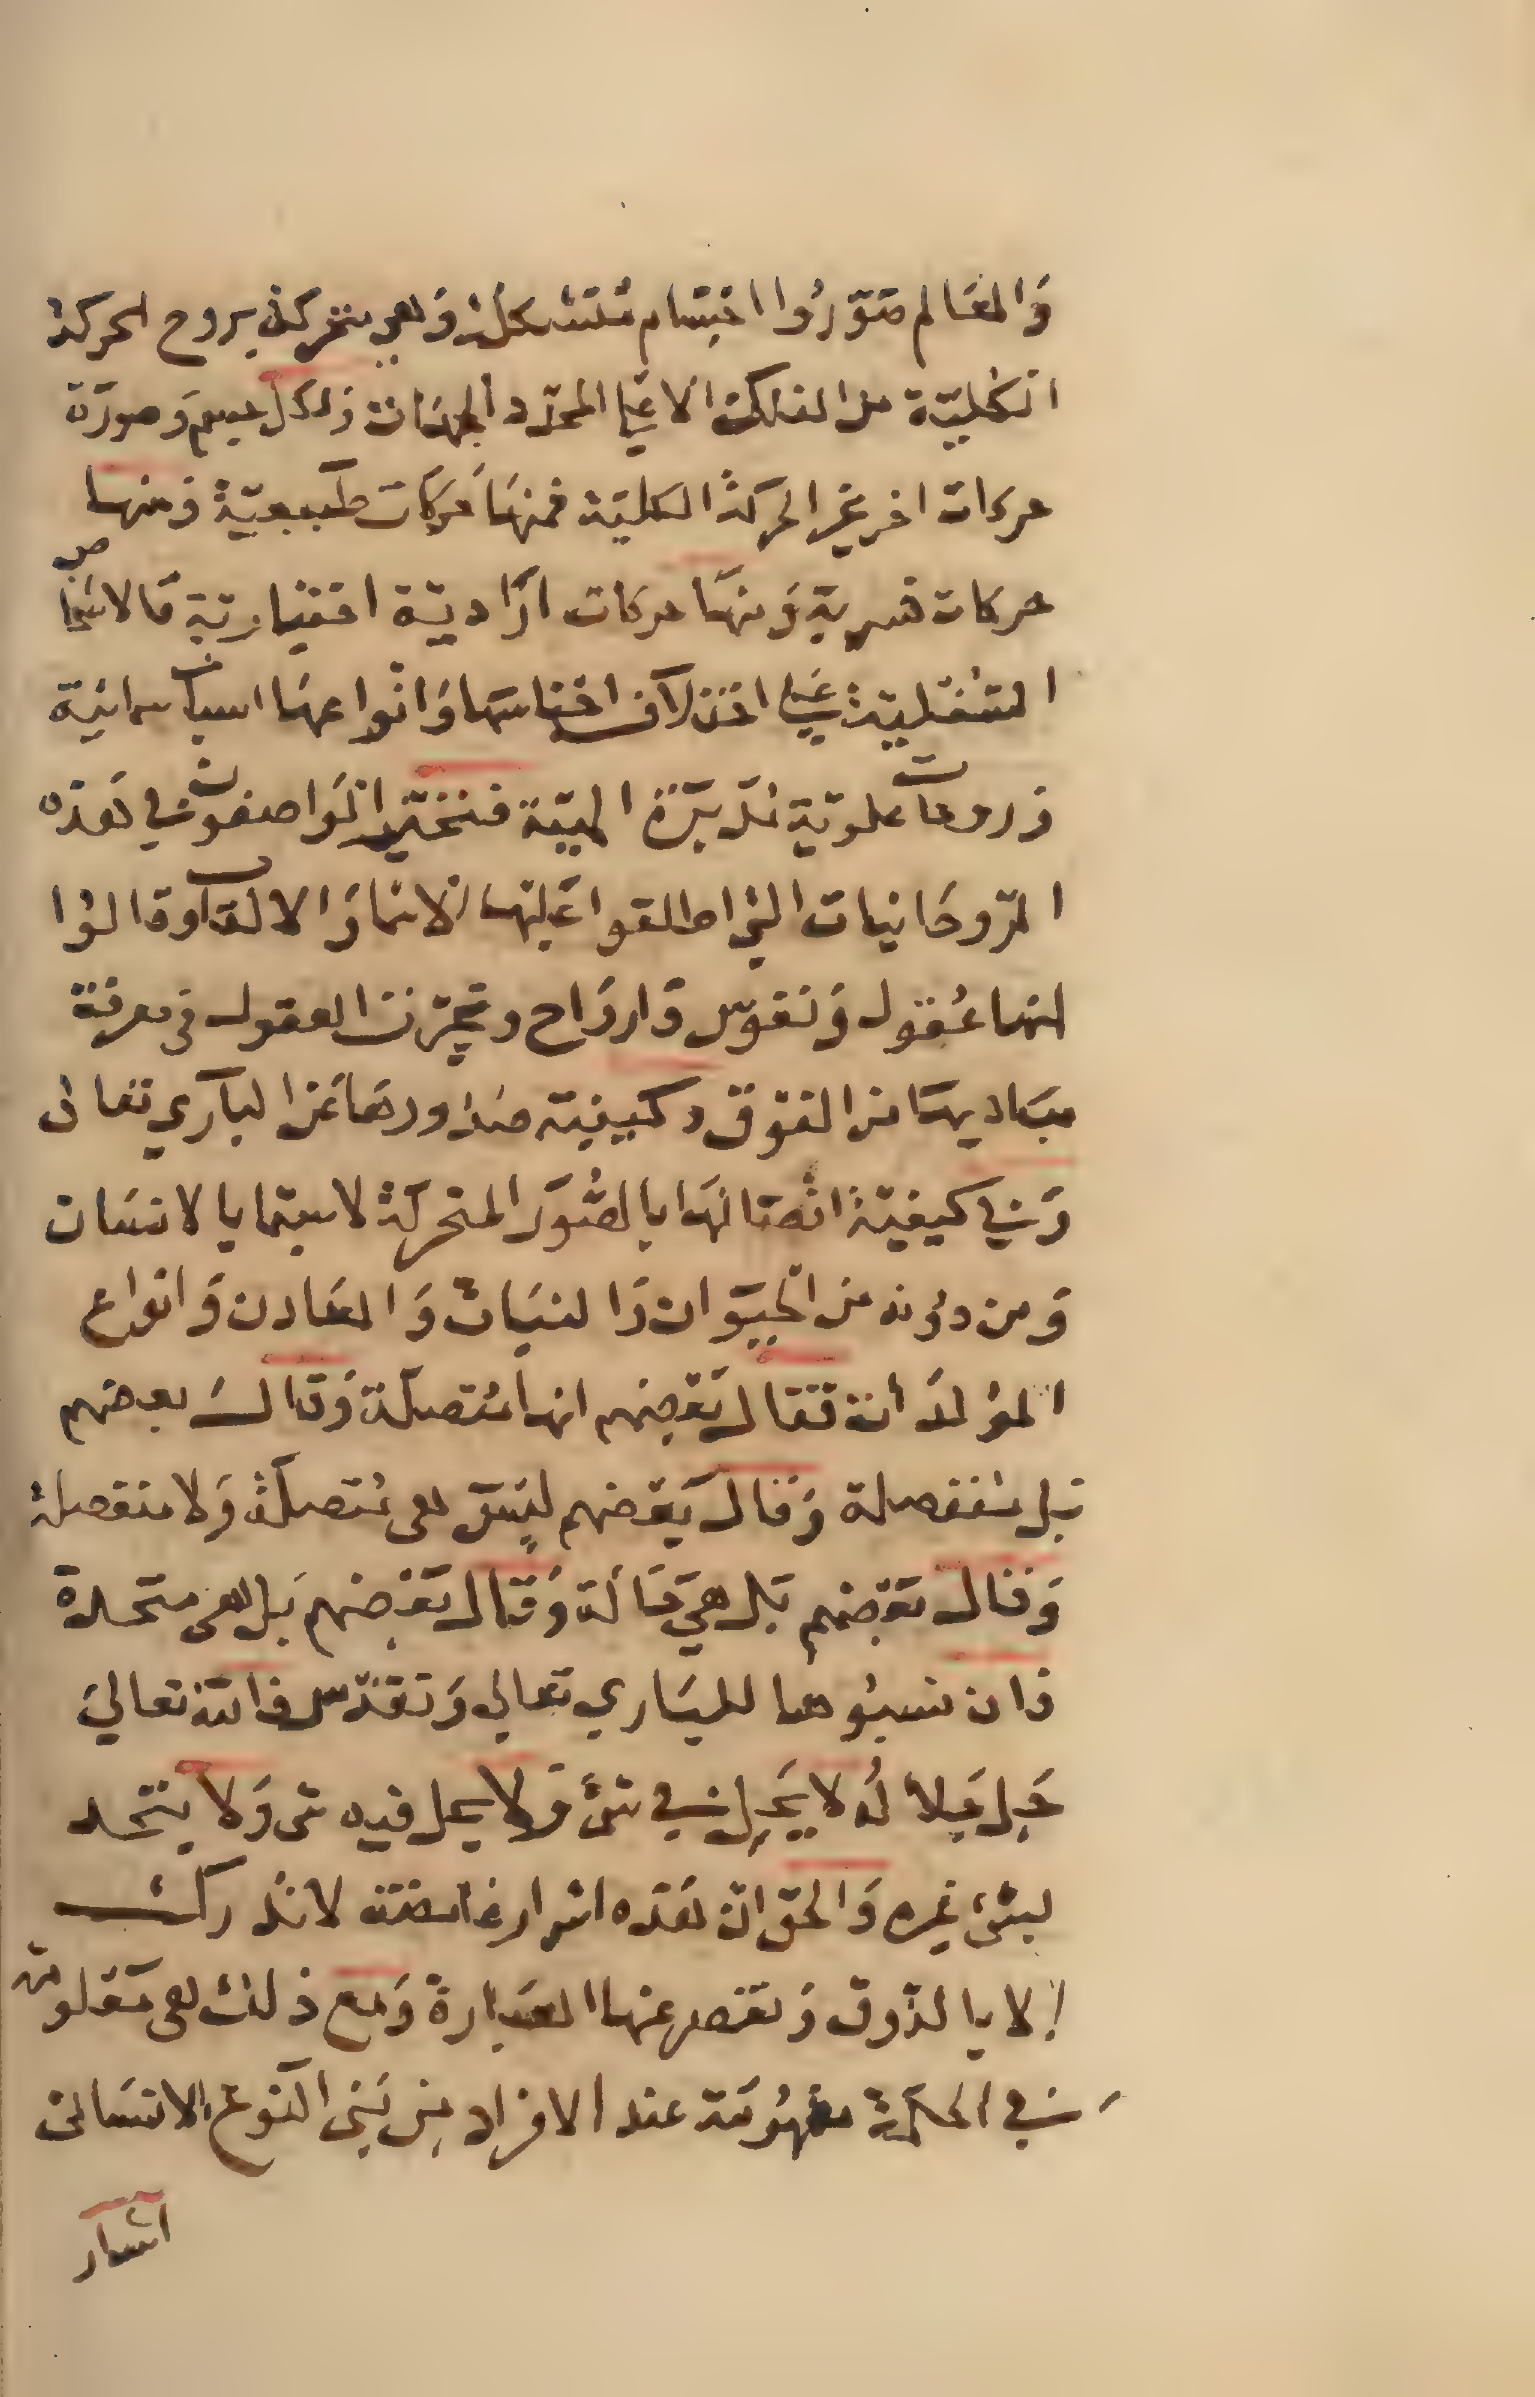 والعالم صور واجسام متشكلة وهي متحركة بروح الحركة
الكلية من الفلك الاعلى المحدد الجهات ولكل جسم وصورة
حركات اخر غير الحركة الكلية فمنها حركات طبيعية ومنها
حركات قسرية ومنها حركات ارادية اختيارية فالاشخاص
السفلية على اختلاف اجناسها وانواعها اسباب سمائية
وروحات علوية مدبرة الهية فتحير الواصفون في هذه
الروحانيات التي اطلقوا عليها الاسما والالقاب وقالوا
انها عقول ونفوس وارواح وتحيرت العقول في معرفة
مباديها من الفوق وكيفية صدورها عن الباري تعالى
وفي كيفية اتصالها بالصور المتحركة لا سيما بالانسان
ومن دونه من الحيوان والنبات والمعادن وانواع
المولدات فقال بعضهم انها متصلة وقال بعضهم
بل منفصلة وقال بعضهم ليست هي متصلة ولا منفصلة
وقال بعضهم بل هي حالة وقال بعضهم بل هي متحدة
فان نسبوها للباري تعالى وتقدس فانه تعالى
جل جلاله لا يحل في شئ ولا يحل فيه شي ولا يتحد
بشئ غيره والحق ان هذه اسرار غامضة لا تدرك
الا بالذوق وتقصر عنها العبارة ومع ذلك هي معلومة
في الحكمة مفهومة عند الافراد من بني النوع الانساني
اشار